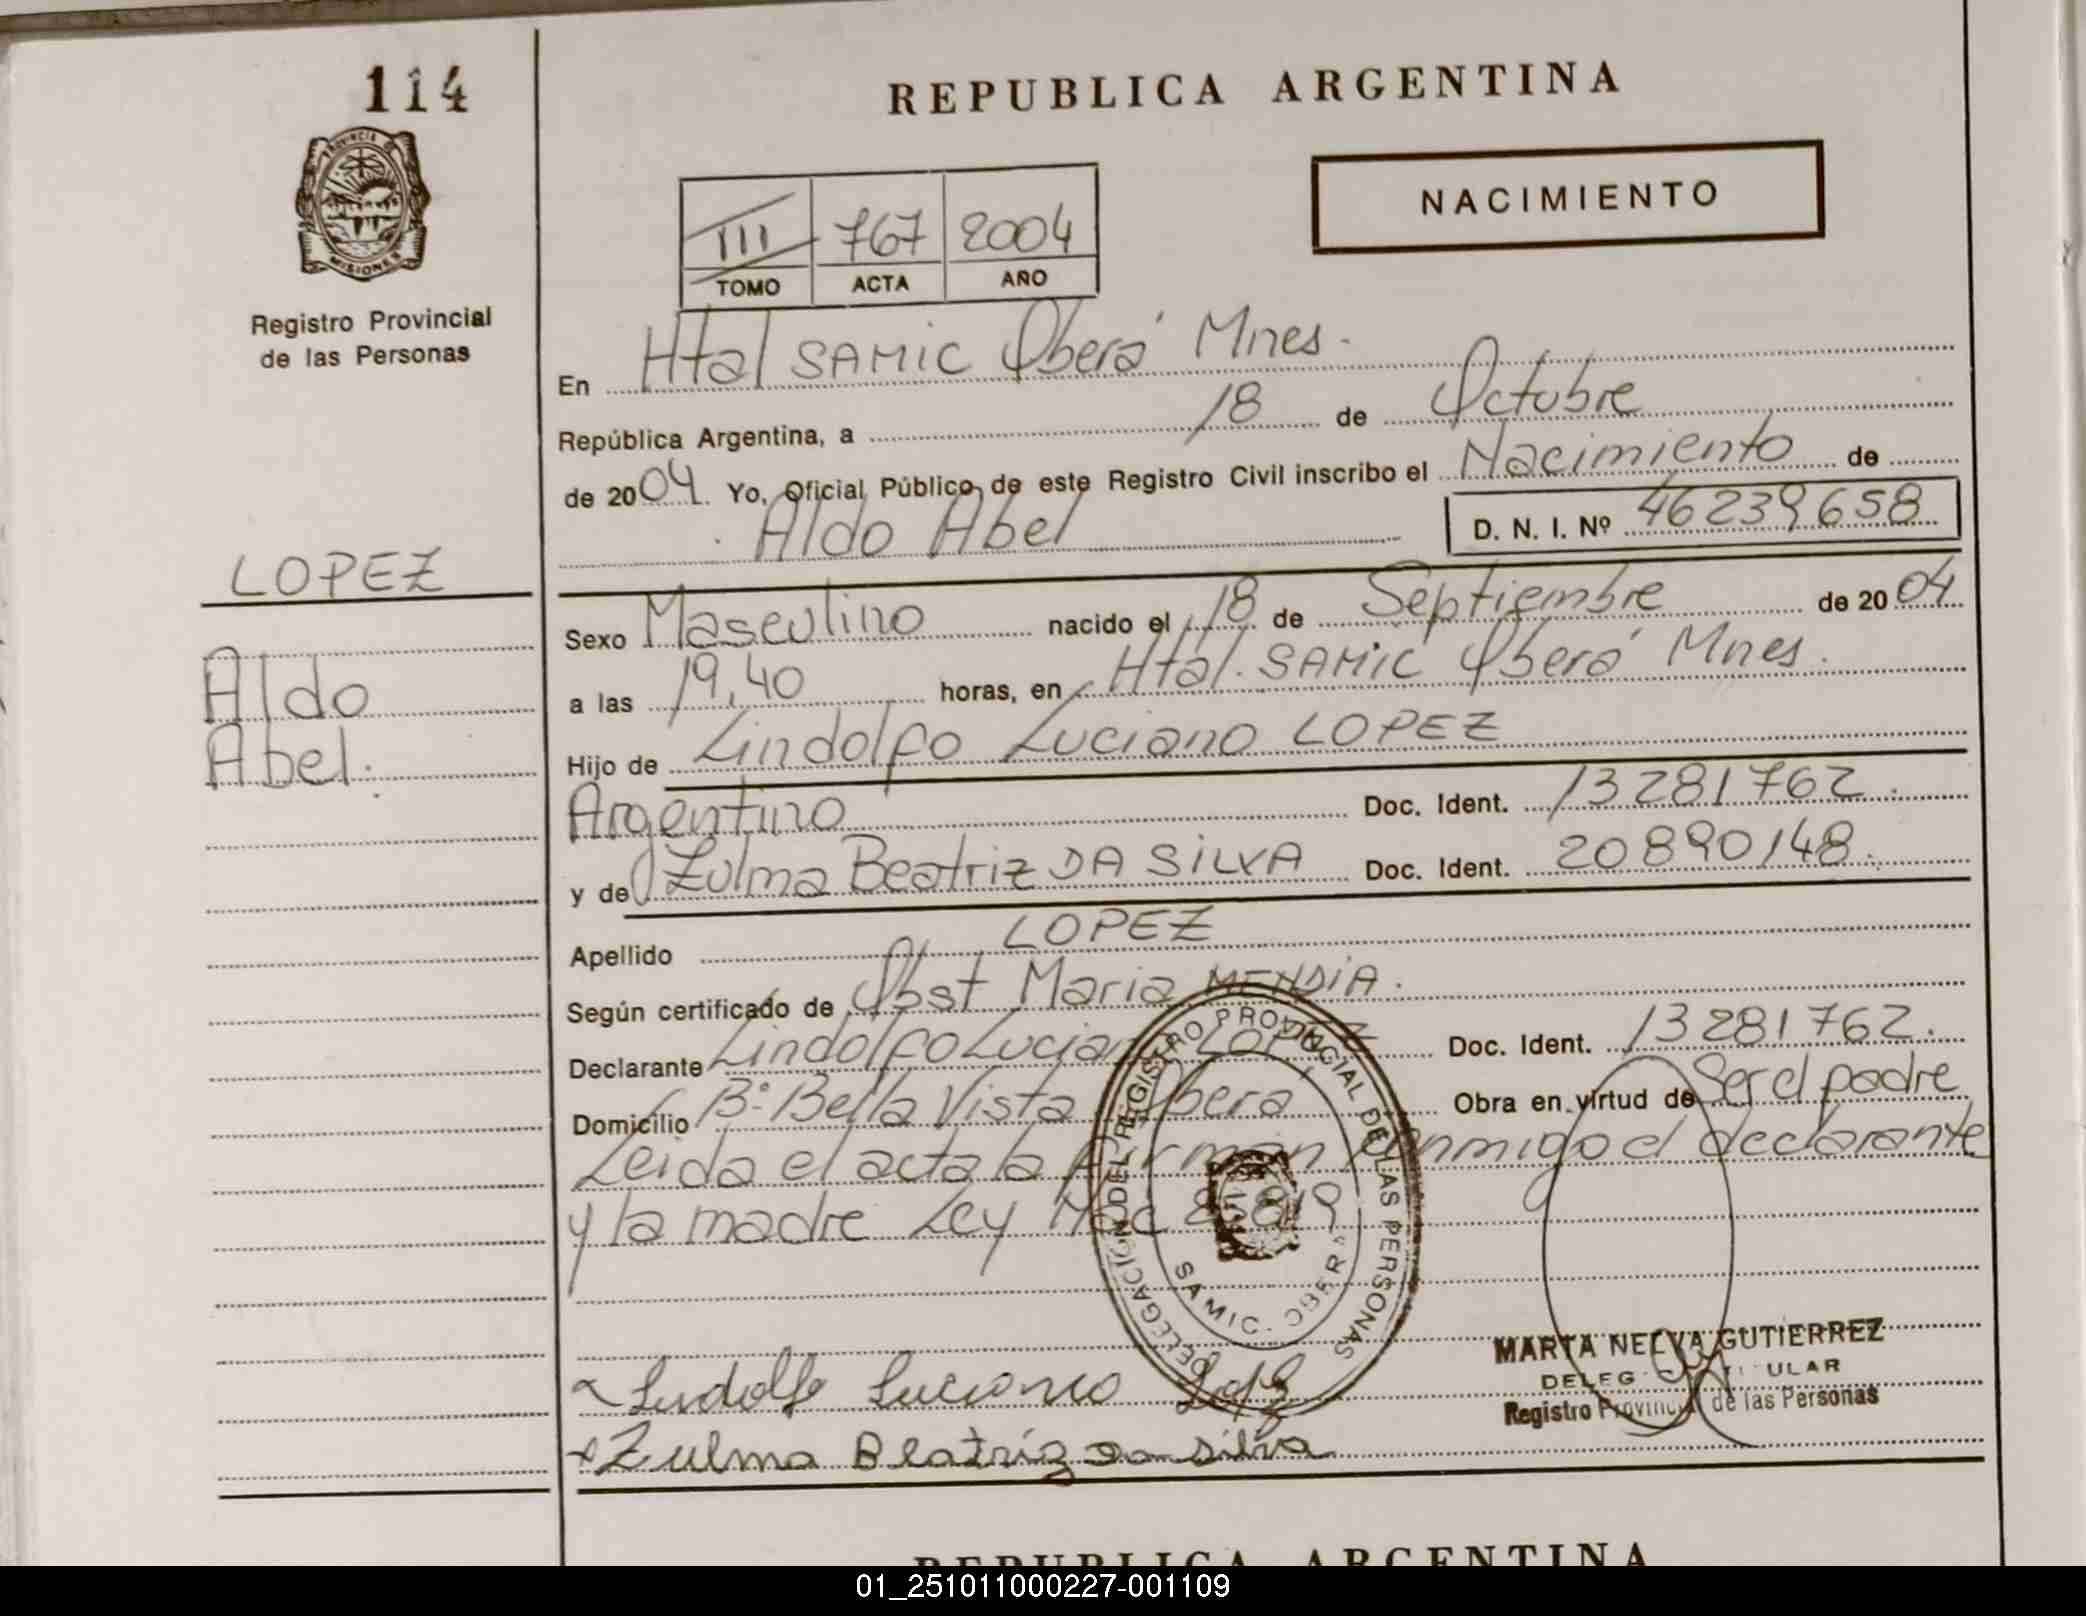 114
PROVINCIA DE
MISIONES
Registro Provincial
de las Personas
LOPEZ
Aldo
Abel.
REPUBLICA ARGENTINA
NACIMIENTO
III 767 2004
TOMO ACTA AÑO
En Htal SAMIC Oberá Mnes.
República Argentina, a 18 de Octubre
de 2004. Yo, Oficial Público de este Registro Civil inscribo el Nacimiento de
Aldo Abel D. N. I. Nº 46239658
Sexo Masculino nacido el 18 de Septiembre de 2004
a las 19,40 horas, en Htal. SAMIC Oberá Mnes.
Hijo de Lindolfo Luciano LOPEZ
Argentino Doc. Ident. 13281762.
y de Zulma Beatriz DA SILVA Doc. Ident. 20890148.
Apellido LOPEZ
Según certificado de Obst Maria MENDIA.
Declarante Lindolfo Luciano LOPEZ Doc. Ident. 13281762.
Domicilio Bº Bella Vista Oberá Obra en virtud de Ser el padre
Leida el acta la firman conmigo el declarante
y la madre Ley Nac
DELEGACIÓN DEL REGISTRO PROVINCIAL DE LAS PERSONAS
SAMIC. OBERA
MARTA NELVA GUTIERREZ
Registro Provincial de las Personas
Lindolfo Luciano Lopez
Zulma Beatriz da silva
REPUBLICA ARGENTINA
01_251011000227-001109